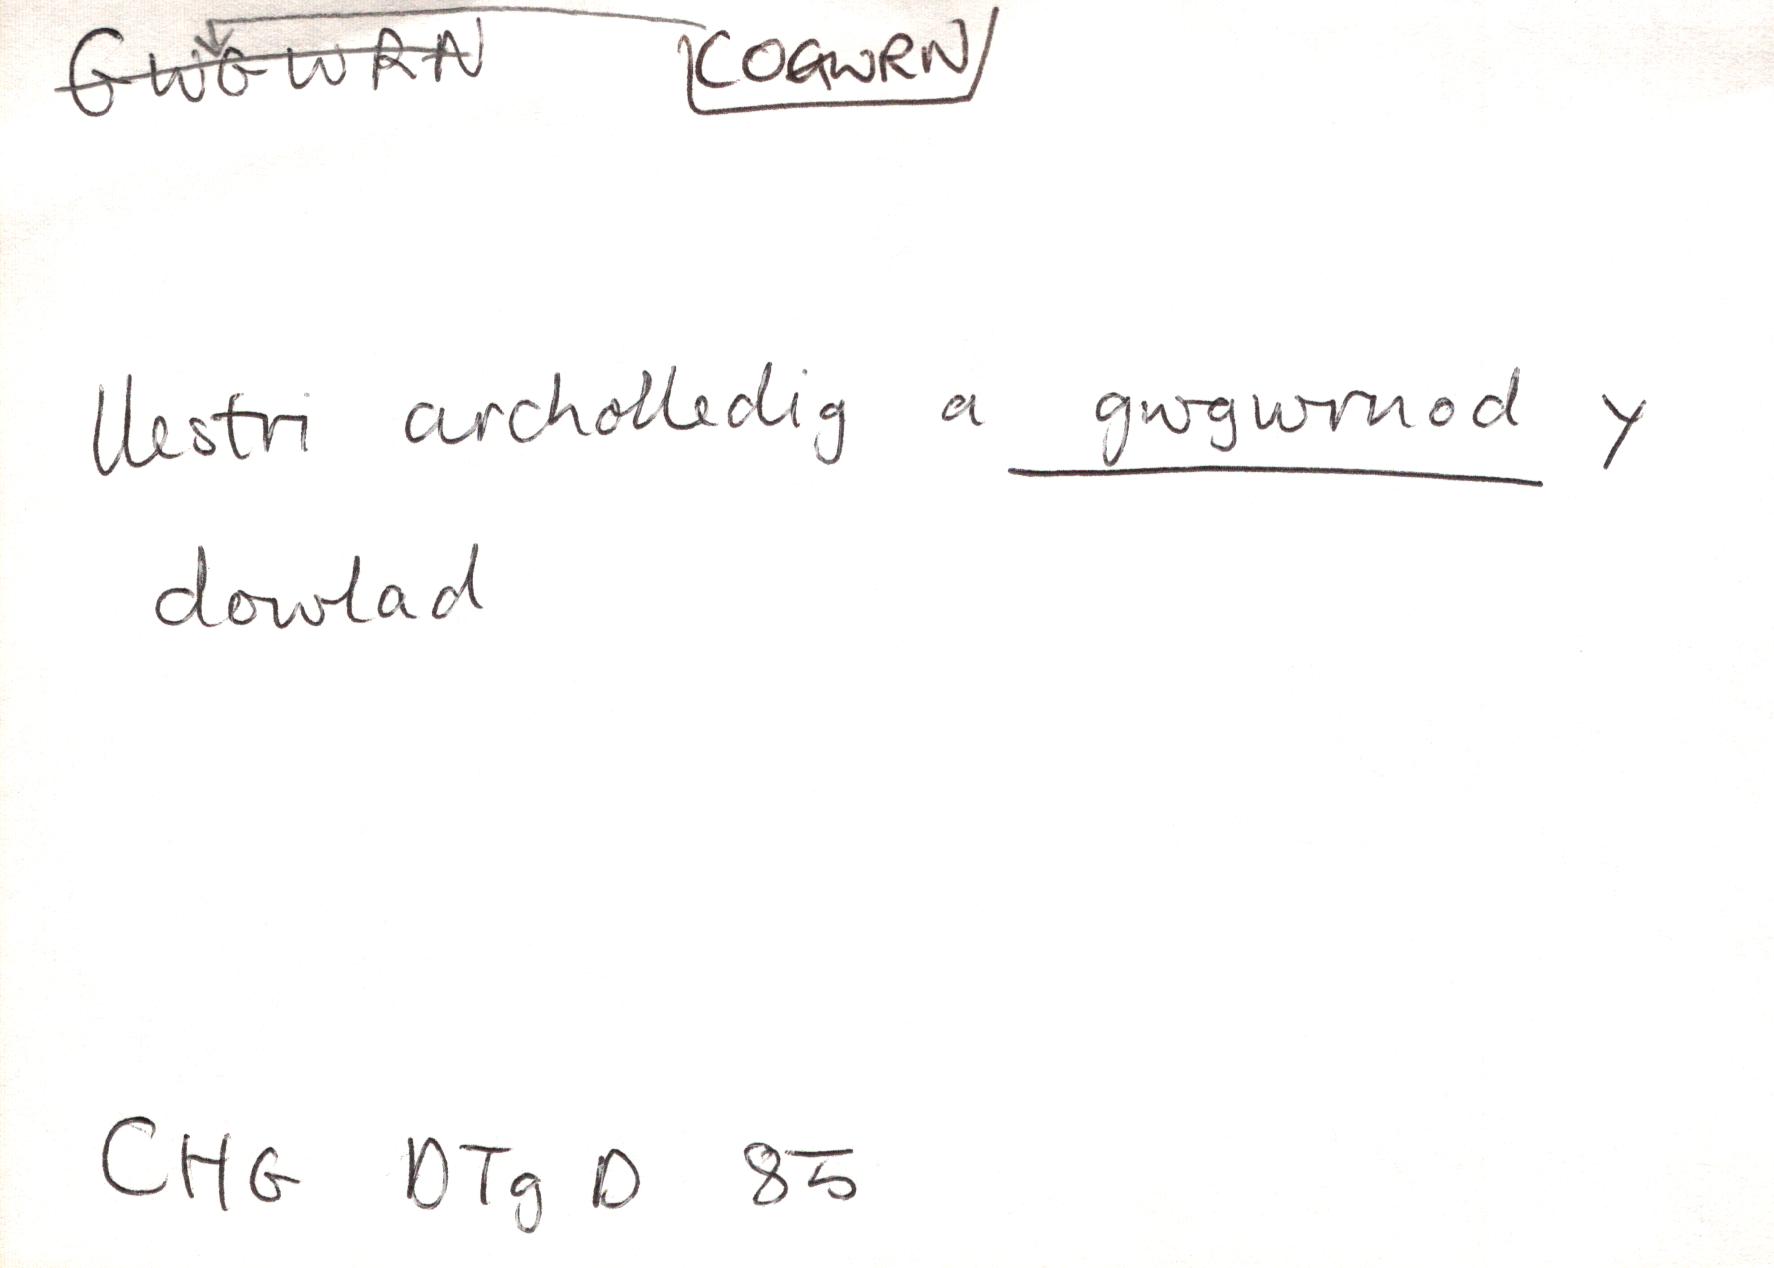 GWGWRN COGWRN
llestri archolledig a gwgwrnod y
dowlad
CHG DTgD 85